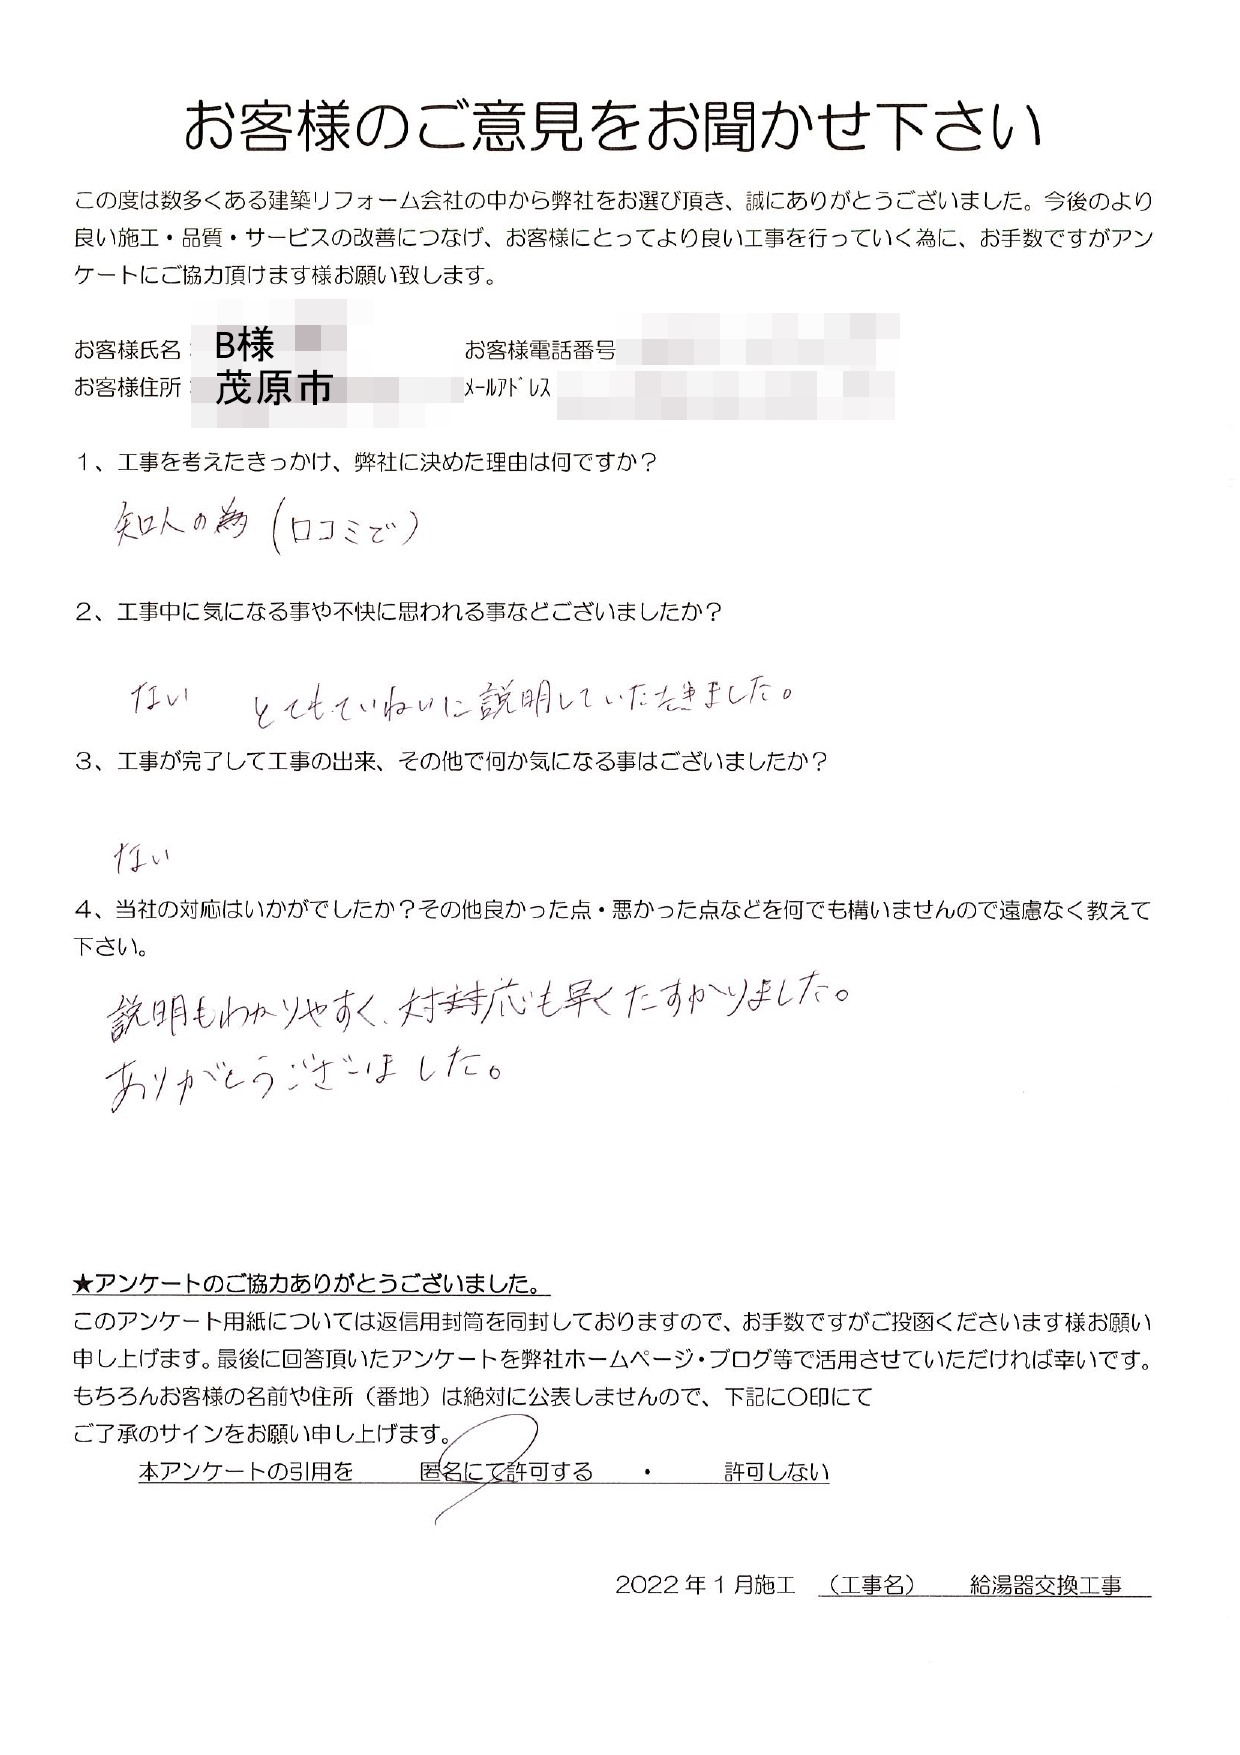 お客様のご意見をお聞かせ下さい
この度は数多くある建築リフォーム会社の中から弊社をお選び頂き、誠にありがとうございました。今後のより
良い施工・品質・サービスの改善につなげ、お客様にとってより良い工事を行っていく為に、お手数ですがアン
ケートにご協力頂けます様お願い致します。
お客様氏名： B様 お客様電話番号
お客様住所： 茂原市 ﾒｰﾙｱﾄﾞﾚｽ
1、工事を考えたきっかけ、弊社に決めた理由は何ですか？
知人の為（口コミで）
2、工事中に気になる事や不快に思われる事などございましたか？
ない とてもていねいに説明していただきました。
3、工事が完了して工事の出来、その他で何か気になる事はございましたか？
ない
4、当社の対応はいかがでしたか？その他良かった点・悪かった点などを何でも構いませんので遠慮なく教えて
下さい。
説明もわかりやすく、対応も早くたすかりました。
ありがとうございました。
★アンケートのご協力ありがとうございました。
このアンケート用紙については返信用封筒を同封しておりますので、お手数ですがご投函くださいます様お願い
申し上げます。最後に回答頂いたアンケートを弊社ホームページ・ブログ等で活用させていただければ幸いです。
もちろんお客様の名前や住所（番地）は絶対に公表しませんので、下記に〇印にて
ご了承のサインをお願い申し上げます。
本アンケートの引用を 匿名にて許可する ・ 許可しない
2022年1月施工 （工事名） 給湯器交換工事